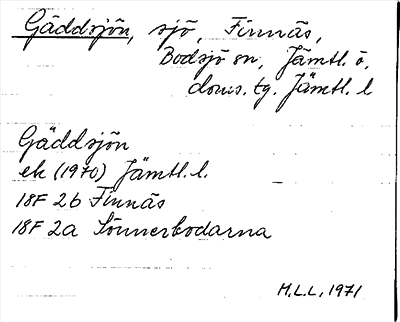 Gäddsjön, sjö, Finnäs,
Bodsjö sn, Jämtl. ö.
doms. tg. Jämtl. l
Gäddsjön
ek (1970) Jämtl. l.
18F 2b Finnäs
18F 2a Sönnerbodarna
M.L.L., 1971